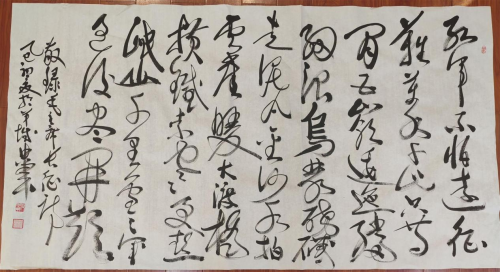 红军不怕远征
难万水千山只等
闲五岭逶迤腾
细浪乌蒙磅礴
走泥丸金沙水拍
云崖暖大渡桥
横铁索寒更喜
岷山千里雪三军
过后尽开颜
敬录毛主席长征诗
初夏於羊城